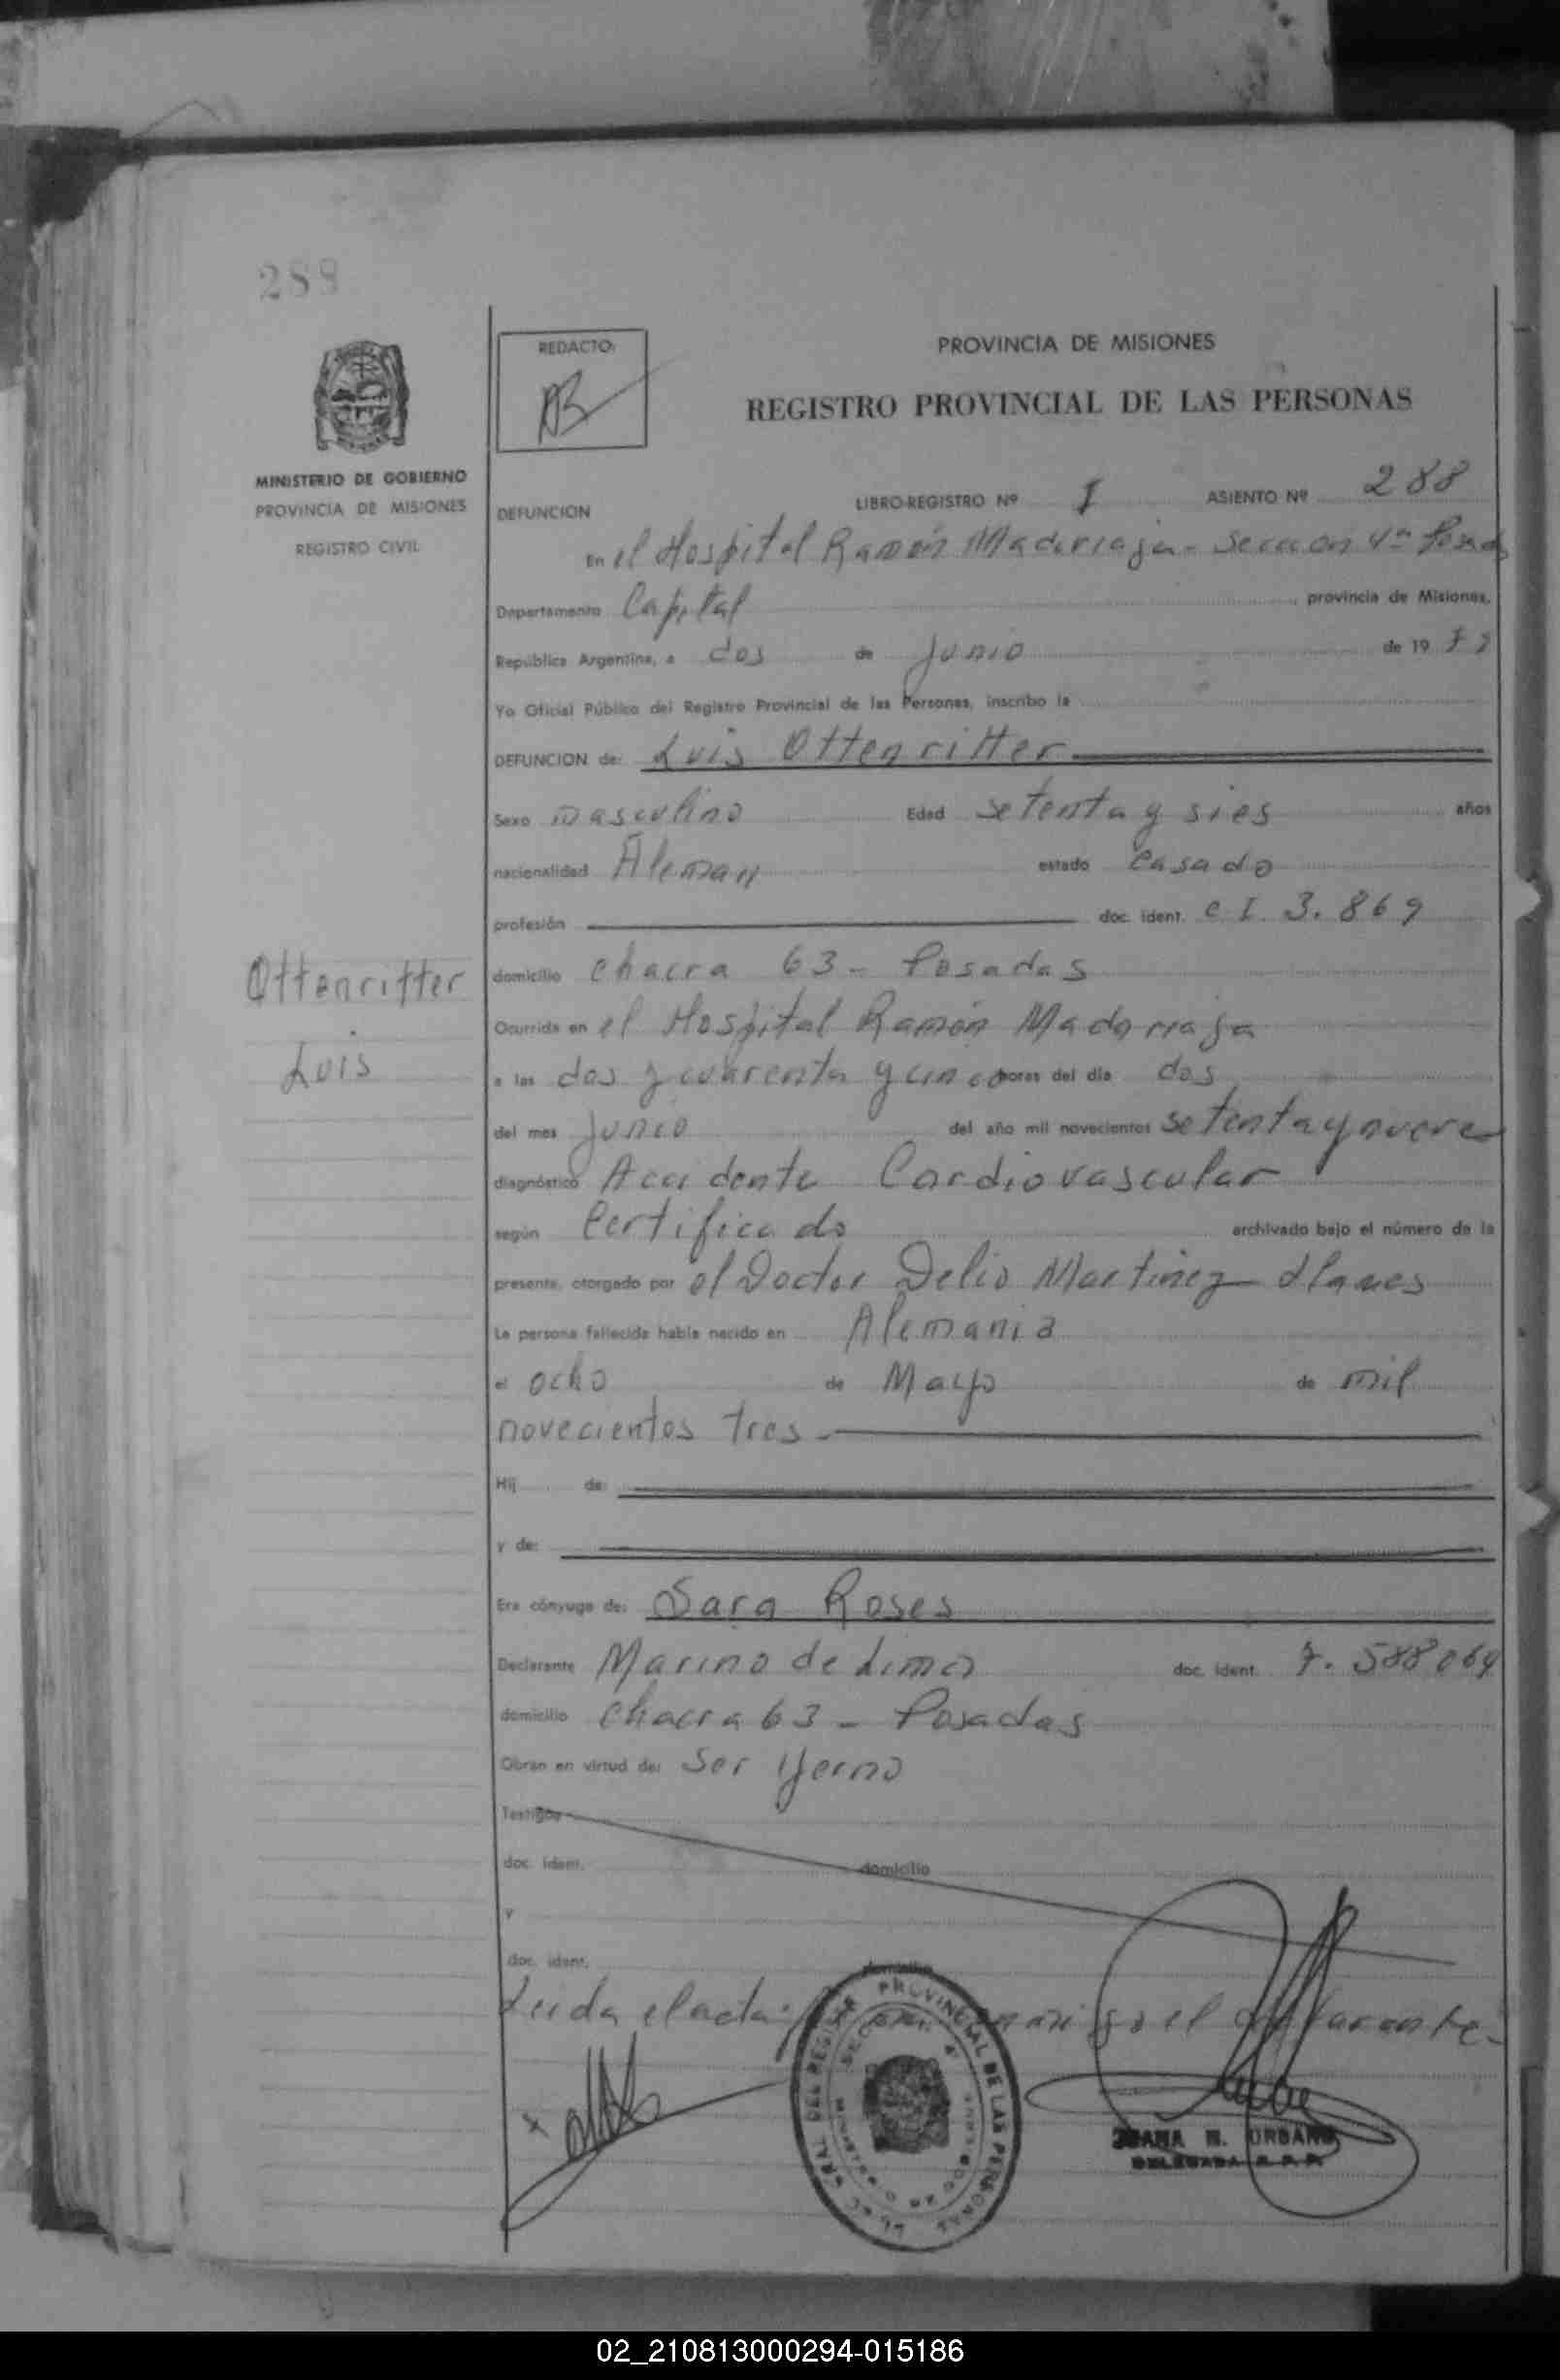 288
REDACTO:
PROVINCIA DE MISIONES
REGISTRO PROVINCIAL DE LAS PERSONAS
MINISTERIO DE GOBIERNO
PROVINCIA DE MISIONES
REGISTRO CIVIL
DEFUNCION LIBRO-REGISTRO Nº I ASIENTO Nº 288
En el Hospital Ramón Madariaga - Seccion 4ta Posadas
Departamento Capital, provincia de Misiones,
República Argentina, a dos de Junio de 19 79
Yo Oficial Público del Registro Provincial de las Personas, inscribo la
DEFUNCION de: Luis Ottenritter
Sexo masculino Edad setenta y sies años
nacionalidad Aleman estado Casado
profesión doc. ident. C I. 3.869
Ottenritter
Luis
domicilio Chacra 63 - Posadas
Ocurrida en el Hospital Ramón Madariaga
a las dos y cuarenta y cinco horas del día dos
del mes Junio del año mil novecientos setenta y nueve
diagnóstico Accidente Cardiovascular
según Certificado archivado bajo el número de la
presente, otorgado por el Doctor Delio Martinez Llanes
La persona fallecida había nacido en Alemania
el ocho de Mayo de mil
novecientos tres
Hij de:
y de:
Era cónyuge de: Sara Roses
Declarante Marino de Lima doc. ident. 7.588064
domicilio Chacra 63 - Posadas
Obran en virtud de: Ser Yerno
Testigos
doc. ident. domicilio
y
doc. ident. domicilio
Leida el acta el declarante
PROVINCIAL DE LAS PERSONAS
JUANA N. URBANO
DELEGADA R.P.P.
02_210813000294-015186